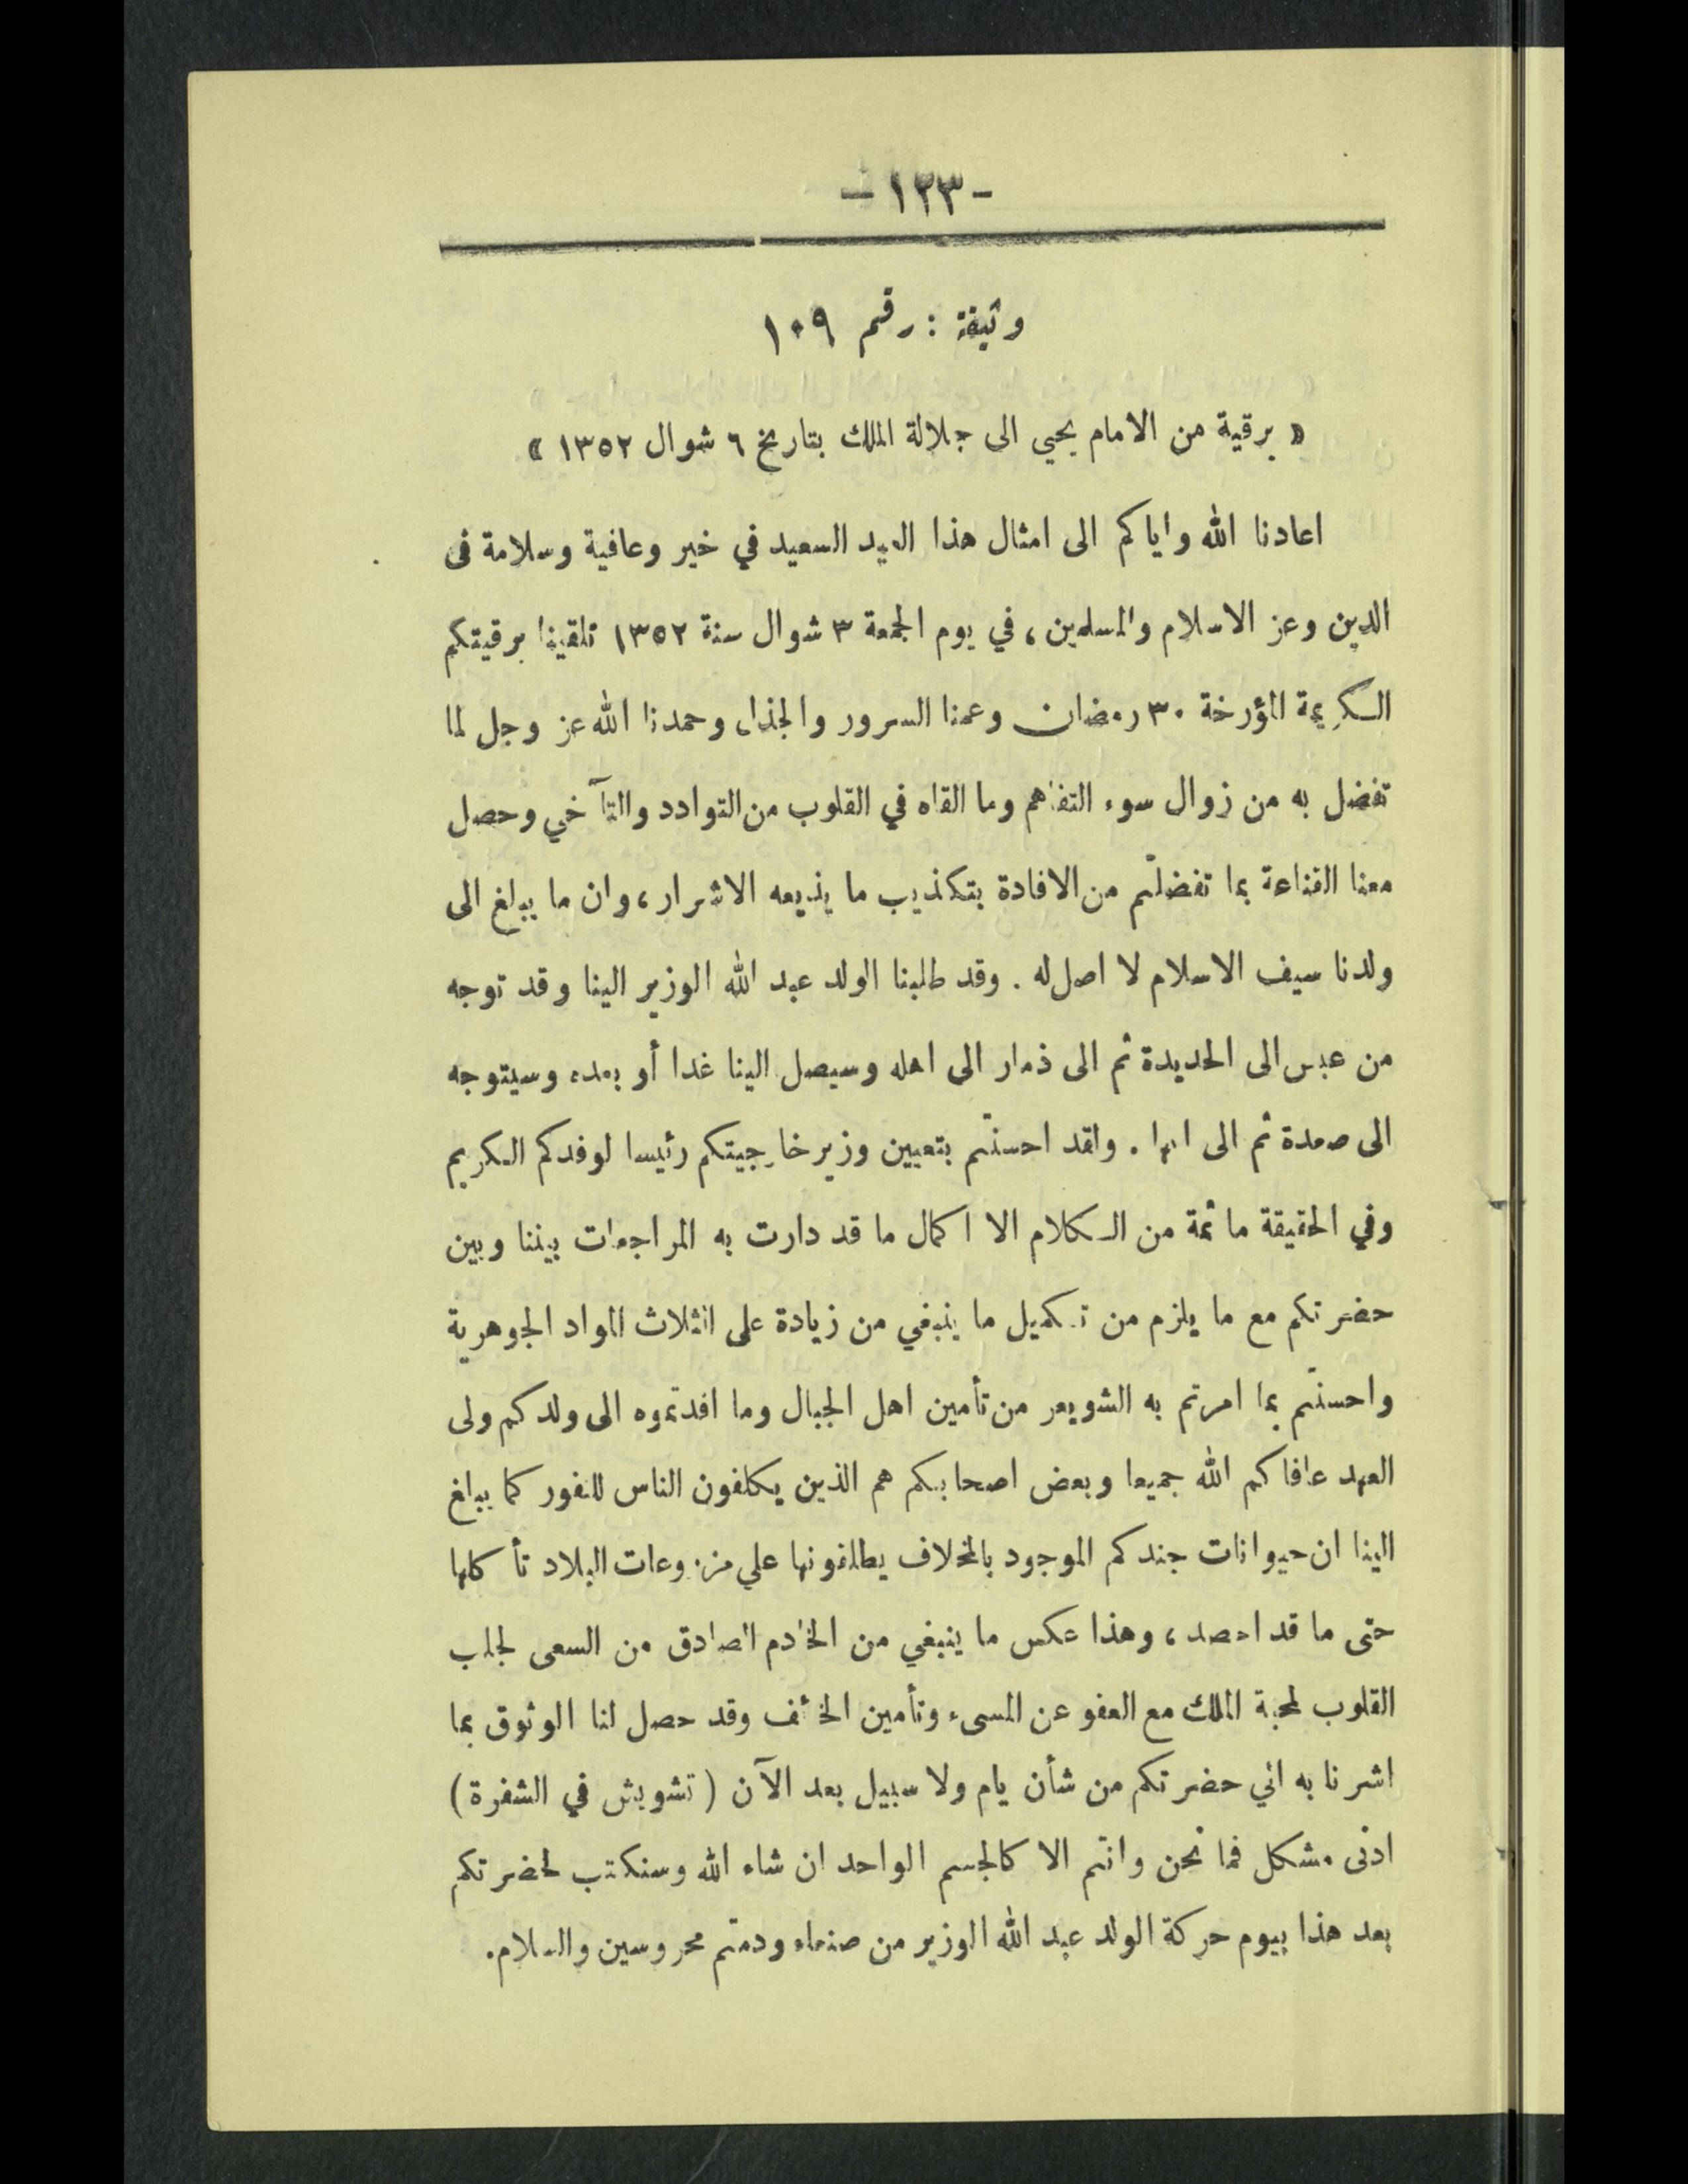 - ١٢٣ -
وثيقة : رقم ١٠٩
« برقية من الامام يحيي الى جلالة الملك بتاريخ ٦ شوال ١٣٥٢ »
اعادنا الله واياكم الى امثال هذا العيد السعيد في خير وعافية وسلامة فى
الدين وعز الاسلام والمسلمين، في يوم الجمعة ٣ شوال سنة ١٣٥٢ تلقينا برقيتكم
الكريمة المؤرخة ٣٠ رمضان وعمنا السرور والجذل وحمدنا الله عز وجل لما
تفضل به من زوال سوء التفاهم وما القاه في القلوب من التوادد والتآخي وحصل
معنا القناعة بما تفضلتم من الافادة بتكذيب ما يذيعه الاشرار، وان ما يبلغ الى
ولدنا سيف الاسلام لا اصل له . وقد طلبنا الولد عبد الله الوزير الينا وقد توجه
من عبس الى الحديدة ثم الى ذمار الى اهله وسيصل الينا غدا أو بعده وسيتوجه
الى صعدة ثم الى ابها . ولقد احسنتم بتعيين وزير خارجيتكم رئيسا لوفدكم الكريم
وفي الحقيقة ما ثمة من الكلام الا اكمال ما قد دارت به المراجعات بيننا وبين
حضرتكم مع ما يلزم من تكميل ما ينبغي من زيادة على الثلاث المواد الجوهرية
واحسنتم بما امرتم به الشويعر من تأمين اهل الجبال وما افدتموه الى ولدكم ولى
العهد عافاكم الله جميعا وبعض اصحابكم هم الذين يكلفون الناس للنفور كما يبلغ
الينا ان حيوانات جندكم الموجود بالمخلاف يطلقونها علي مزروعات البلاد تأكلها
حتى ما قد احصد، وهذا عكس ما ينبغي من الخادم الصادق من السعى لجلب
القلوب لمحبة الملك مع العفو عن المسىء وتأمين الخائف وقد حصل لنا الوثوق بما
اشرنا به الي حضرتكم من شأن يام ولا سبيل بعد الآن ( تشويش في الشفرة )
ادنى مشكل فما نحن وانتم الا كالجسم الواحد ان شاء الله وسنكتب لحضرتكم
بعد هذا بيوم حركة الولد عبد الله الوزير من صنعاء ودمتم محروسين والسلام.